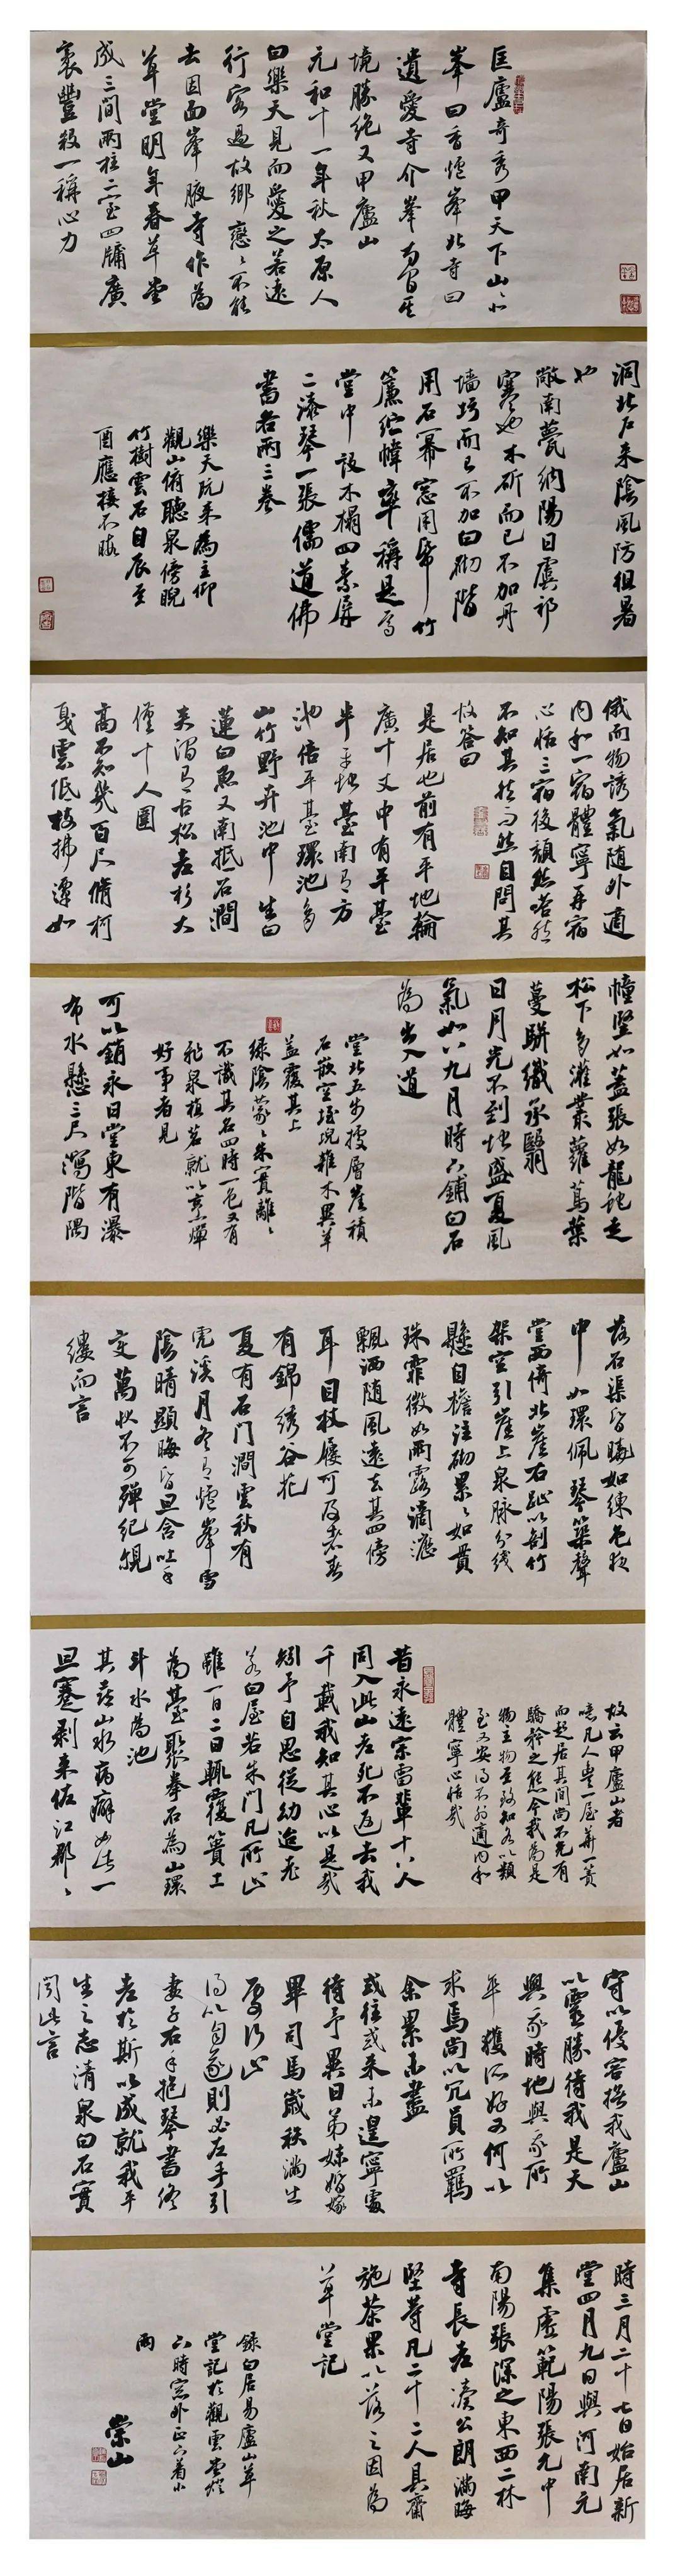 匡廬奇秀甲天下山山北
峯曰香爐峯北寺曰
遺愛寺介峯寺間其
境勝絶又甲廬山
元和十一年秋太原人
白樂天見而愛之若遠
行客過故鄉戀戀不能
去因面峯腋寺作為
草堂明年春草堂
成三間兩柱二室四牖廣
袤豐殺一稱心力
洞北戶来陰風防徂暑
也
敞南甍納陽日虞祁
寒也木斫而已不加丹
墻圬而已不加白砌階
用石冪窓用紙竹
簾紵幃率稱是焉
堂中設木榻四素屏
二漆琴一張儒道佛
書各兩三卷
樂天既来為主仰
觀山俯聽泉傍睨
竹樹雲石自辰至
酉應接不暇
俄而物誘氣随外適
内和一宿體寧再宿
心恬三宿後頹然嗒然
不知其然而然自問其
故答曰
是居也前有平地輪
廣十丈中有平臺
半平地臺南有方
池倍平臺環池多
山竹野卉池中生白
蓮白魚又南抵石澗
夾澗有古松老杉大
僅十人圍
高不知幾百尺脩柯
戛雲低枝拂潭如
幢竪如蓋張如龍蛇走
松下多灌叢蘿蔦葉
蔓駢織承翳
日月光不到地盛夏風
氣如八九月時下鋪白石
為出入道
堂北五步據層崖積
石嵌空垤堄雜木異草
蓋覆其上
緑陰蒙蒙朱實離離
不識其名四時一色又有
飛泉植茗就以烹燀
好事者見
可以銷永日堂東有瀑
布水懸三尺瀉階隅
落石渠昏曉如練色夜
中如環佩琴築聲
堂西倚北崖右趾以剖竹
架空引崖上泉脉分綫
懸自檐注砌累累如貫
珠霏微如雨露滴瀝
飄洒随風遠去其四傍
耳目杖屨可及者春
有錦綉谷花
夏有石门澗雲秋有
虎溪月冬有爐峯雪
陰晴顯晦昏旦含吐千
变萬狀不可殫紀覼
縷而言
故云甲廬山者
噫凡人豊一屋華一簀
而起居其間尚不免有
驕矜之態今我為是
物主物至致知各以類
至又安得不外適内和
體寧心恬哉
昔永遠宗雷輩十八人
同入此山老死不返去我
千載我知其心以是哉
矧予自思従幼迨老
若白屋若朱門凡所止
雖一日二日輒覆簣土
為臺聚拳石為山環
斗水為池
其喜山水病癖如此一
旦蹇剥来佐江郡郡
守以優容撫我廬山
以靈勝待我是天
與我時地與我所
卒獲所好又何以
求焉尚以冗員所羈
余累未盡
或往或来未遑寧處
待予異日弟妹婚嫁
畢司馬歲秩滿出
處行止
得以自遂則必左手引
妻子右手抱琴書終
老於斯以成就我平
生之志清泉白石實
聞此言
時三月二十七日始居新
堂四月九日與河南元
集虚範陽張允中
南陽張深之東西二林
寺長老凑公朗滿晦
堅等凡二十二人具齋
施茶果以落之因為
草堂記
録白居易廬山草
堂記於觀雲堂燈
下時窓外正下着小
雨
崇山